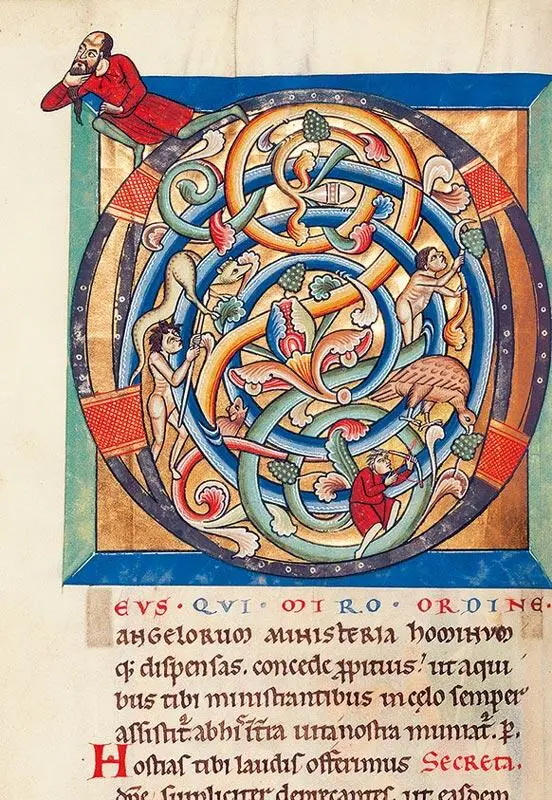 DEVS · QVI · MIRO · ORDINE ·
angelorum ministeria hominum
q; dispensas. concede p̱pitius! ut a qui
bus tibi ministrantibus in celo semper
assistit᷑ ab hī ī t̄ra uita nostra muniat᷑. P.
Hostias tibi laudis offerimus Secreta.
dn̄e supliciter deprecantes. ut easdem